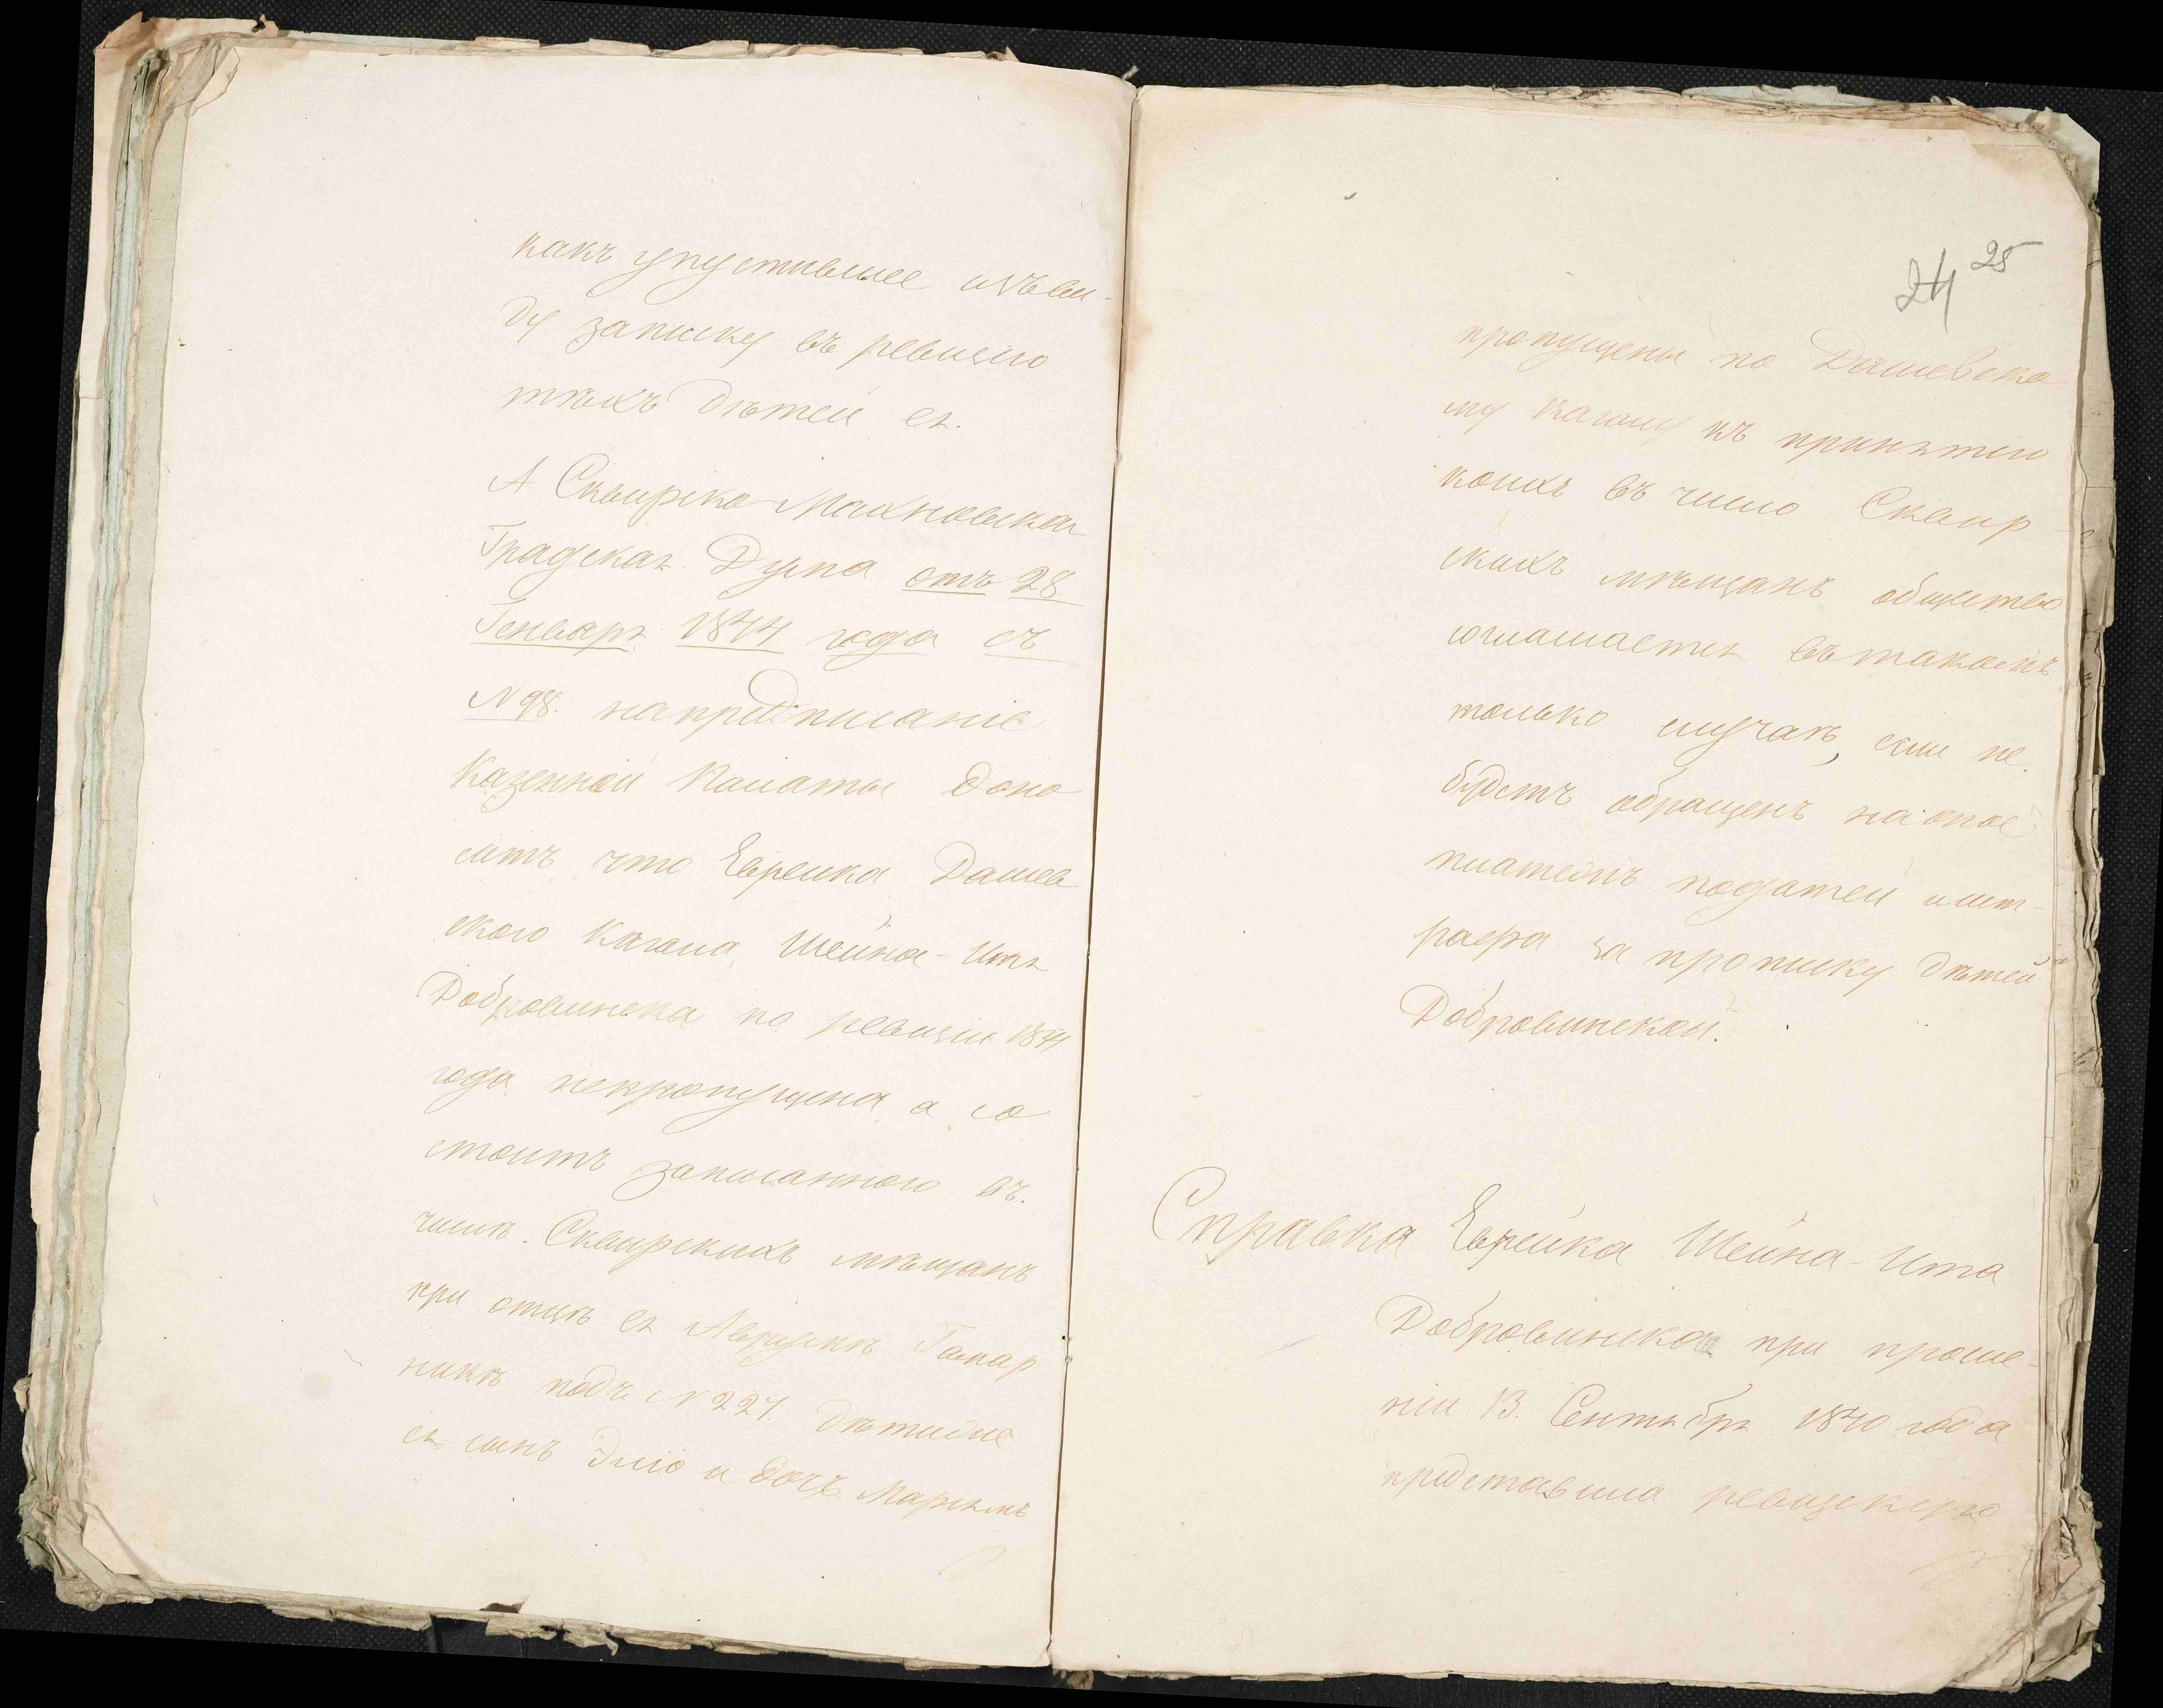 какъ упустившее изъ ви-
ду записку въ ревизiю
тѣхъ дѣтей ея.
А Сквирско-Махновская
Градская Дума отъ 28
Генваря 1844 года съ
N 98. на предписанiе
Казенной Палаты доно
ситъ что Еврейка Дашев
ского Кагала Шейна-Итя
Добровинска по ревизiи 1834
года непропущена а со
стоитъ записанного въ
числѣ Сквирскихъ мѣщанъ
при отцѣ ея Аврумѣ
никѣ подъ N 227. дѣти же
ея сынъ Элiо а дочь Марьямъ
24 25
пропущены по Дашевско
му Кагалу къ принятiю
коихъ въ число Сквир-
скихъ мѣщанъ общество
соглашается въ такомъ
только случаѣ, если не
будетъ обращенъ на оное
платежъ податей и шт-
рафа за прописку дѣтей
Добровинской.
Справка Еврейка Шейна-Ита
Добровинска при проше-
нiи 13. Сентября 1840 года
представила ревизскую